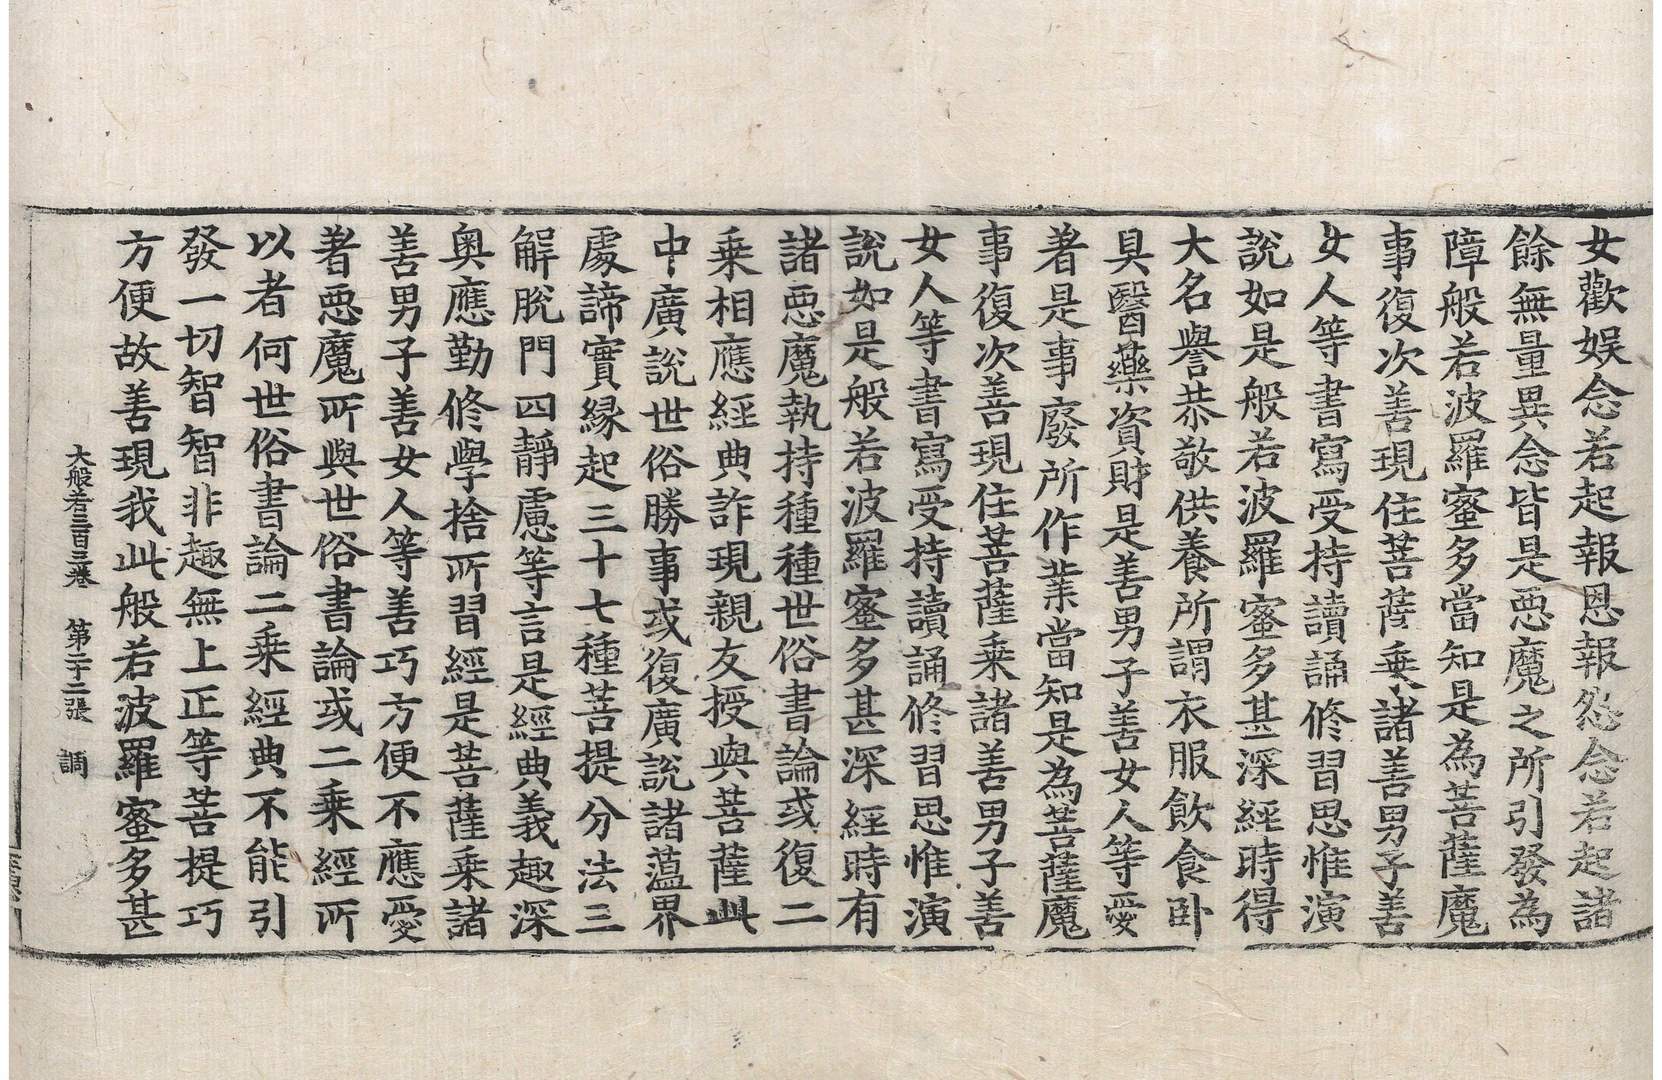 女歡娯念若起報恩報怨念若起諸
餘無量異念皆是惡魔之所引發為
障般若波羅蜜多當知是為菩薩魔
事復次善現住菩薩乗諸善男子善
女人等書寫受持讀誦修習思惟演
說如是般若波羅蜜多甚深經時得
大名譽恭敬供養所謂衣服飲食卧
具醫藥資財是善男子善女人等愛
著是事廢所作業當知是為菩薩魔
事復次善現住菩薩乗諸善男子善
女人等書寫受持讀誦修習思惟演
說如是般若波羅蜜多甚深經時有
諸惡魔執持種種世俗書論或復二
乗相應經典詐現親友授與菩薩此
中廣說世俗勝事或復廣說諸蘊界
處諦實緣起三十七種菩提分法三
解脫門四靜慮等言是經典義趣深
奧應勤修學捨所習經是菩薩乗諸
善男子善女人等善巧方便不應愛
著惡魔所與世俗書論或二乗經所
以者何世俗書論二乗經典不能引
發一切智智非趣無上正等菩提巧
方便故善現我此般若波羅蜜多甚
大般若三百三卷 第二十二張 調